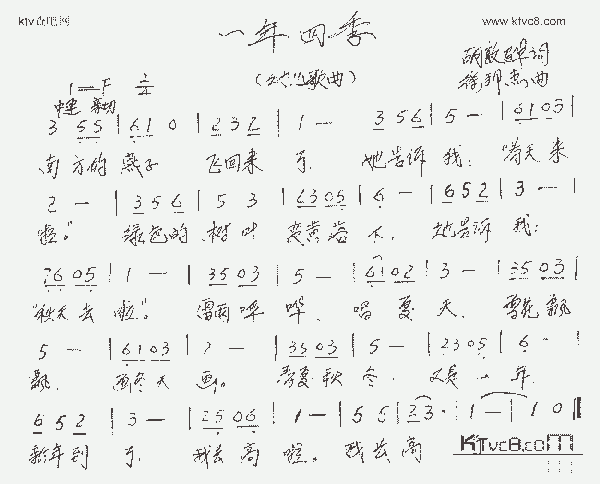 ktv www.ktvc8.com
一年四季
(幼儿歌曲)
词
1=F 2/4 曲
中速 亲切
3 55 | 61 0 | 232 | 1 - | 3 56 | 5 - | 61 03 |
南方的燕子 飞回来了，她告诉我："春天来
2 - | 356 | 5 3 | 23 05 | 6 - | 652 | 3 - |
啦。" 绿色的树叶 变黄落下，她告诉我：
76 05 | 1 - | 35 03 | 5 - | 61 02 | 3 - | 35 03 |
"秋天去啦。" 雷雨哗哗，唱夏天，雪花飘
5 - | 61 03 | 2 - | 35 03 | 5 - | 23 05 | 6 - |
飘，画冬天画。春夏秋冬，又是一年，
652 | 3 - | 25 06 | 1 - | 5 6 | 23· | 1 - | 1 0 ‖
新年到了，我长高啦。我长高
KTvc8.com